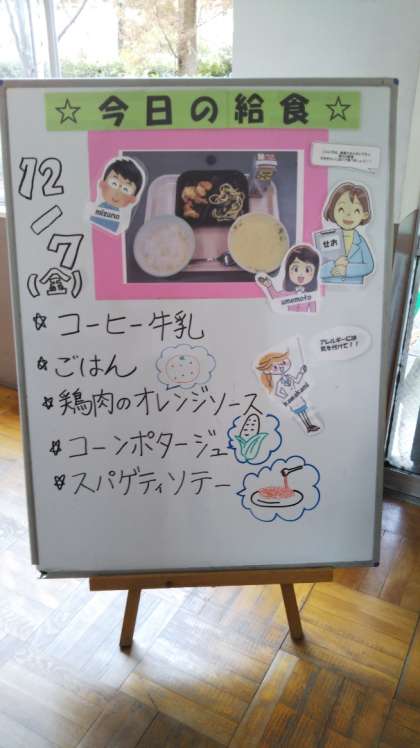 ☆今日の給食☆
12/7
(金)
mizuno
せお
umemoto
アレルギーには
気を付けて!!
☆コーヒー牛乳
☆ごはん
☆鶏肉のオレンジソース
☆コーンポタージュ
☆スパゲティソテー